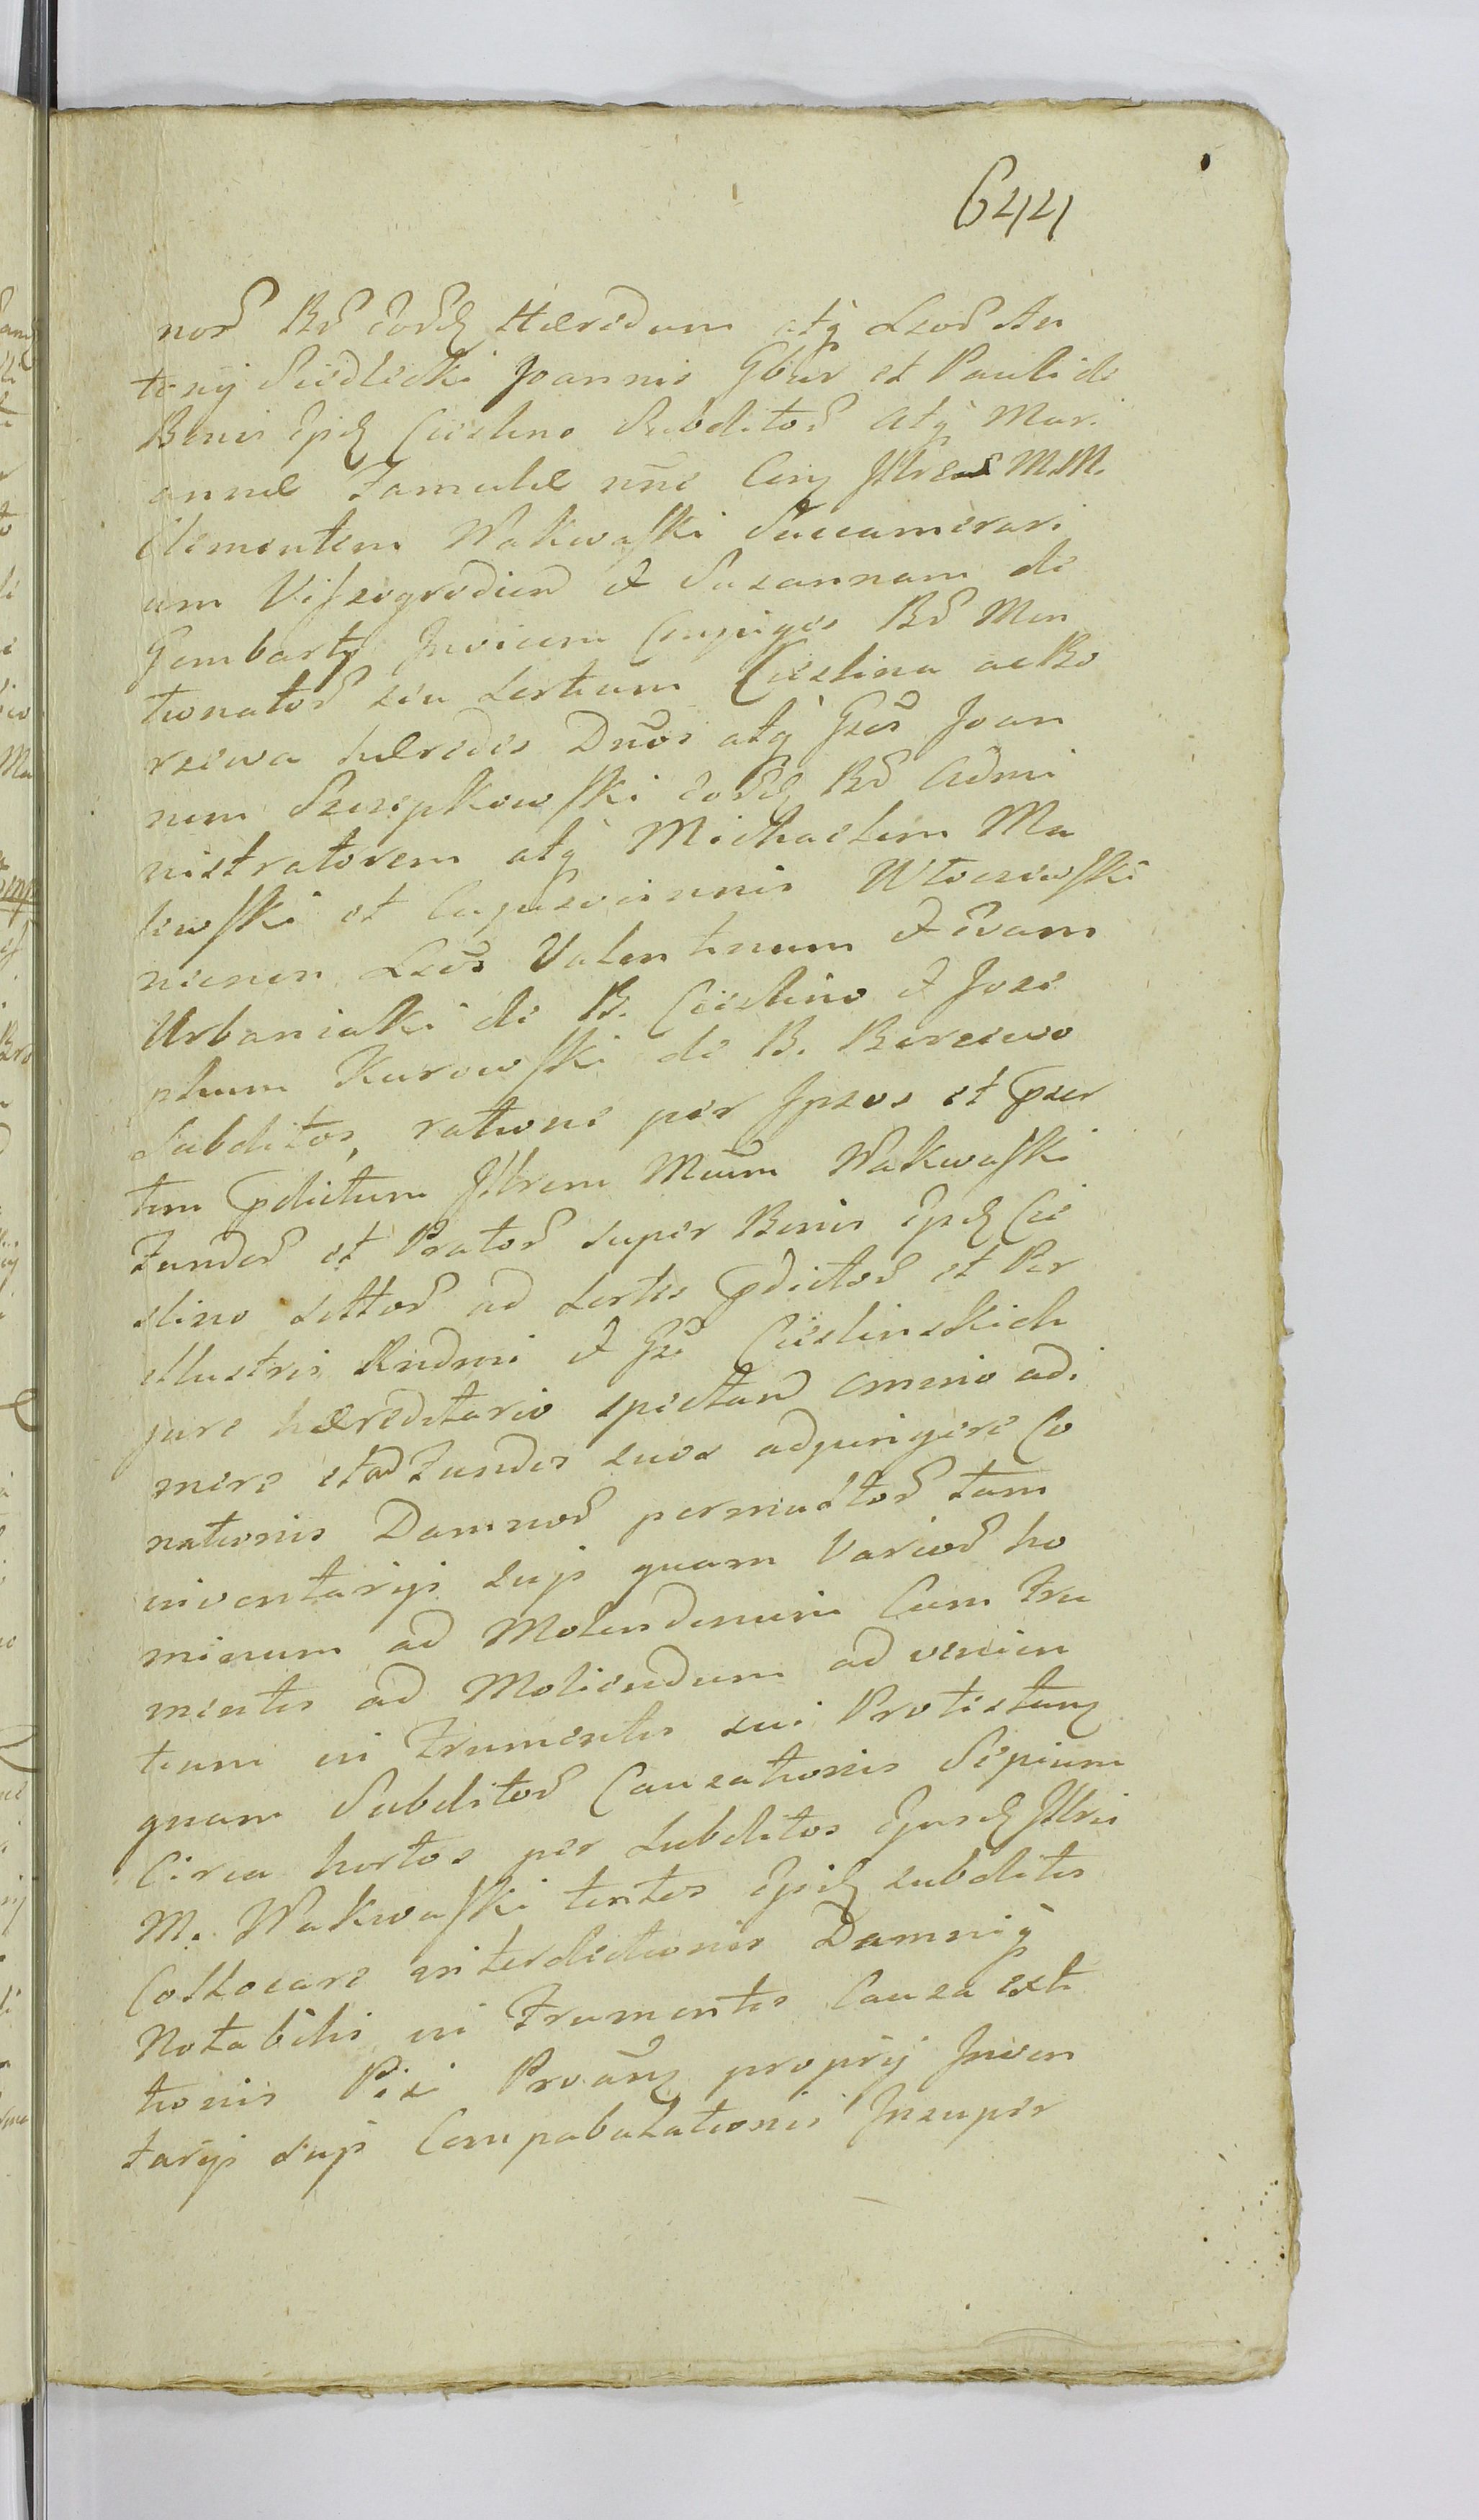 644
nor Br eord Hæredum atq Lbor An
tonij Siedlecki Joannis Gbur et Pauli de
Bonis ijsd Cieslino Subditor atq Mari
annæ Famulæ nne Cam Illres M.M.
Clementem Wakwaski Succamerari
um Viszogrodien et Susannam de
Gembarty Invicem Conjuges Br Men
tionator seu Sortium Cieslina ac Bo
rzewa hæredes Dnos atq Gsos Joan
nem Szczepkowski eord Br Admi
nistratorem atq Michaelem Ma
lewski et Cognominis Wloczewski
nicnen Lbos Valentinum et Evam
Urbaniaki de B. Cieslino et Jose
phum Kurowski de B. Borzewo
Subditos, ratione per Ipsos et pser
tim pdictum Illrem Mcum Wakwaski
Fundor et Prator super Bonis ijsd Cie
slino sittor ad Sortes pdictor et Per
illustris Rndmi et Gsi Cieslinskich
jure hæreditario spectan omnino adi
mere et ad Fundos suos adjungere Co
nationis Damnor permultor tam
inventarijs sujs quam Varior ho
minum ad Molendinum Cum Fru
mentis ad Moliendum ad venien
tium in Frumentis sui Protestan
quam Subditor Causationis Sepium
Circa hortos per Subditos Ejusd Illris
M. Wakwaski tentos ijsd subditis
Collocare interdictionis Damniq
Notabilis in Frumentis Causa exti
tionis Pisi Proan proprij Inven
tarijs sujs Compabulationis Insuper